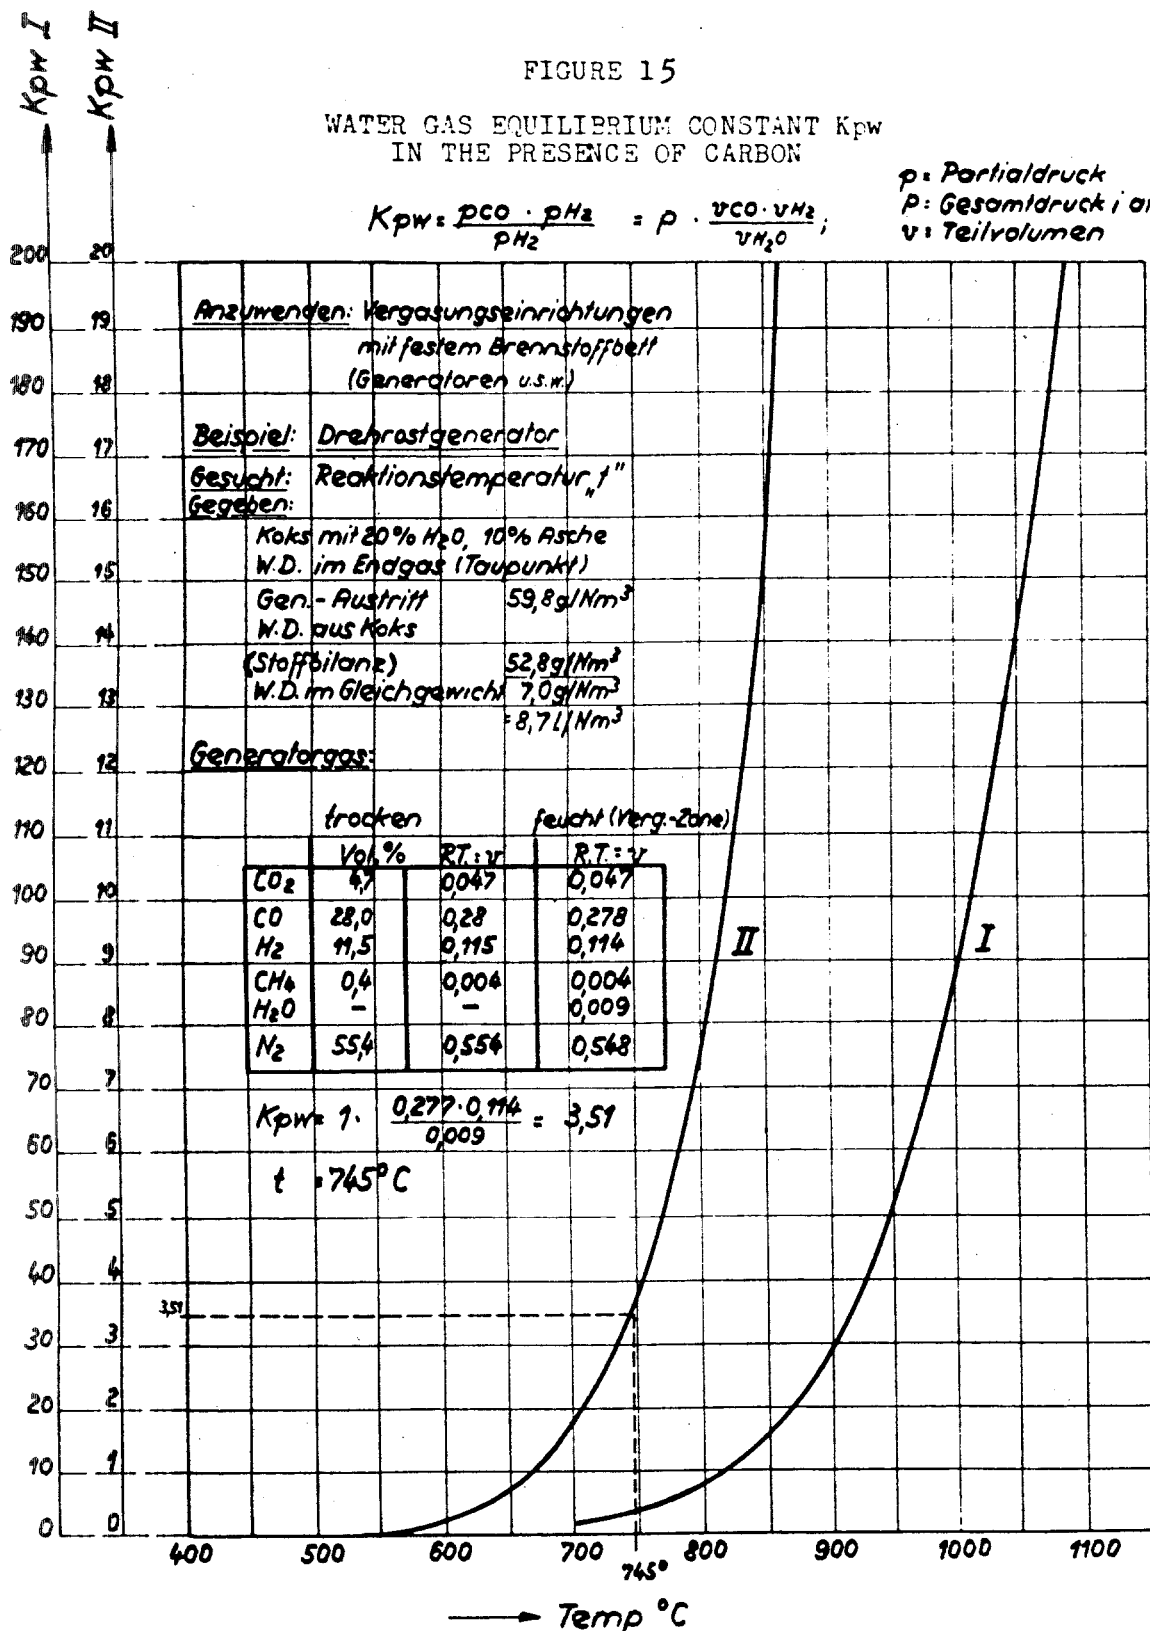 Kpw I
Kpw II
FIGURE 15
WATER GAS EQUILIBRIUM CONSTANT Kpw
IN THE PRESENCE OF CARBON
Kpw = pCO · pH2 / pH2 = P · vCO · vH2 / vH2O ;
p = Partialdruck
P = Gesamtdruck i
v = Teilvolumen
200 20
190 19
180 18
170 17
160 16
150 15
140 14
130 13
120 12
110 11
100 10
90 9
80 8
70 7
60 6
50 5
40 4
30 3
20 2
10 1
0 0
Anzuwenden: Vergasungseinrichtungen
mit festem Brennstoffbett
(Generatoren u.s.w.)
Beispiel: Drehrostgenerator
Gesucht: Reaktionstemperatur „t"
Gegeben:
Koks mit 20% H2O, 10% Asche
W.D. im Endgas (Taupunkt)
Gen.- Austritt 59,8g/Nm³
W.D. aus Koks
(Stoffbilanz) 52,8g/Nm³
W.D. im Gleichgewicht 7,0g/Nm³
= 8,7 l/Nm³
Generatorgas:
trocken feucht (Verg.-Zone)
Vol.% R.T.: v R.T.: v
CO2 4,7 0,047 0,047
CO 28,0 0,28 0,278
H2 11,5 0,115 0,114
CH4 0,4 0,004 0,004
H2O – – 0,009
N2 55,4 0,554 0,548
II
I
Kpw = 1 · 0,277·0,114 / 0,009 = 3,51
t = 745°C
3,51
400 500 600 700 800 900 1000 1100
745°
Temp °C